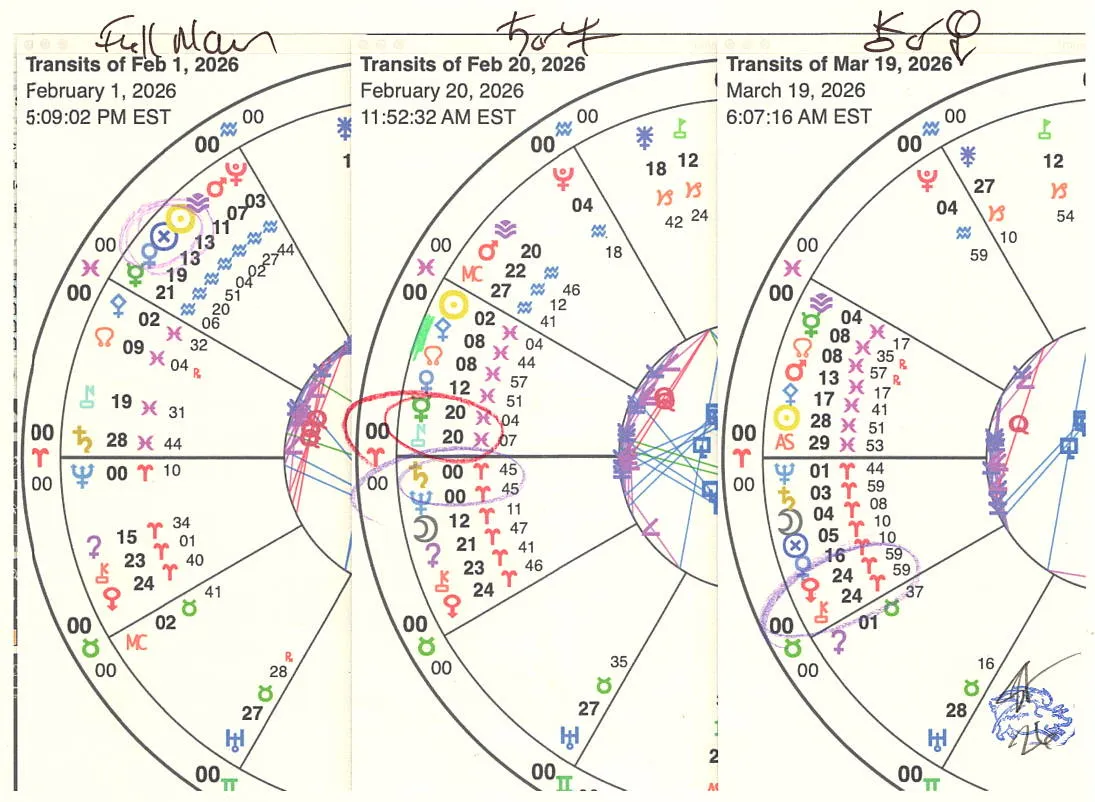 Full Moon
Transits of Feb 1, 2026
February 1, 2026
5:09:02 PM EST
00 ♒ 00
03 ♒ 44
07 ♒ 27
11 ♒ 02
13 ♒ 04
13 ♒ 51
19 ♒ 20
21 ♒ 06
00 ♓ 00
02 ♓ 32
☊ 09 ♓ 04 ℞
19 ♓ 31
♄ 28 ♓ 44
00 ♈ 00
♆ 00 ♈ 10
15 ♈ 34
23 ♈ 01
24 ♈ 40
MC 02 ♉ 41
00 ♉ 00
27 ♉ 28 ℞
00 ♊
♄ ☌ ♆
Transits of Feb 20, 2026
February 20, 2026
11:52:32 AM EST
00 ♒ 00
18 ♑ 42
12 ♑ 24
04 ♒ 18
20 ♒ 46
♂ 22 ♒ 12
MC 27 ♒ 41
00 ♓ 00
☉ 02 ♓ 04
08 ♓ 44
☊ 08 ♓ 57
♀ 12 ♓ 51
☿ 20 ♓ 04
20 ♓ 07
00 ♈ 00
♄ 00 ♈ 45
♆ 00 ♈ 45
☽ 12 ♈ 11
21 ♈ 47
23 ♈ 41
24 ♈ 46
00 ♉ 00
27 ♉ 35
00 ♊
Transits of Mar 19, 2026
March 19, 2026
6:07:16 AM EST
00 ♒ 00
27 ♑ 10
12 ♑ 54
04 ♒ 59
00 ♓ 00
04 ♓ 17
☿ 08 ♓ 35 ℞
☊ 08 ♓ 57 ℞
♂ 13 ♓ 17
17 ♓ 41
☉ 28 ♓ 51
AS 29 ♓ 53
00 ♈ 00
♆ 01 ♈ 44
♄ 03 ♈ 59
☽ 04 ♈ 08
05 ♈ 10
♀ 16 ♈ 10
24 ♈ 59
24 ♈ 59
01 ♉ 37
00 ♉ 00
28 ♉ 16
00 ♊